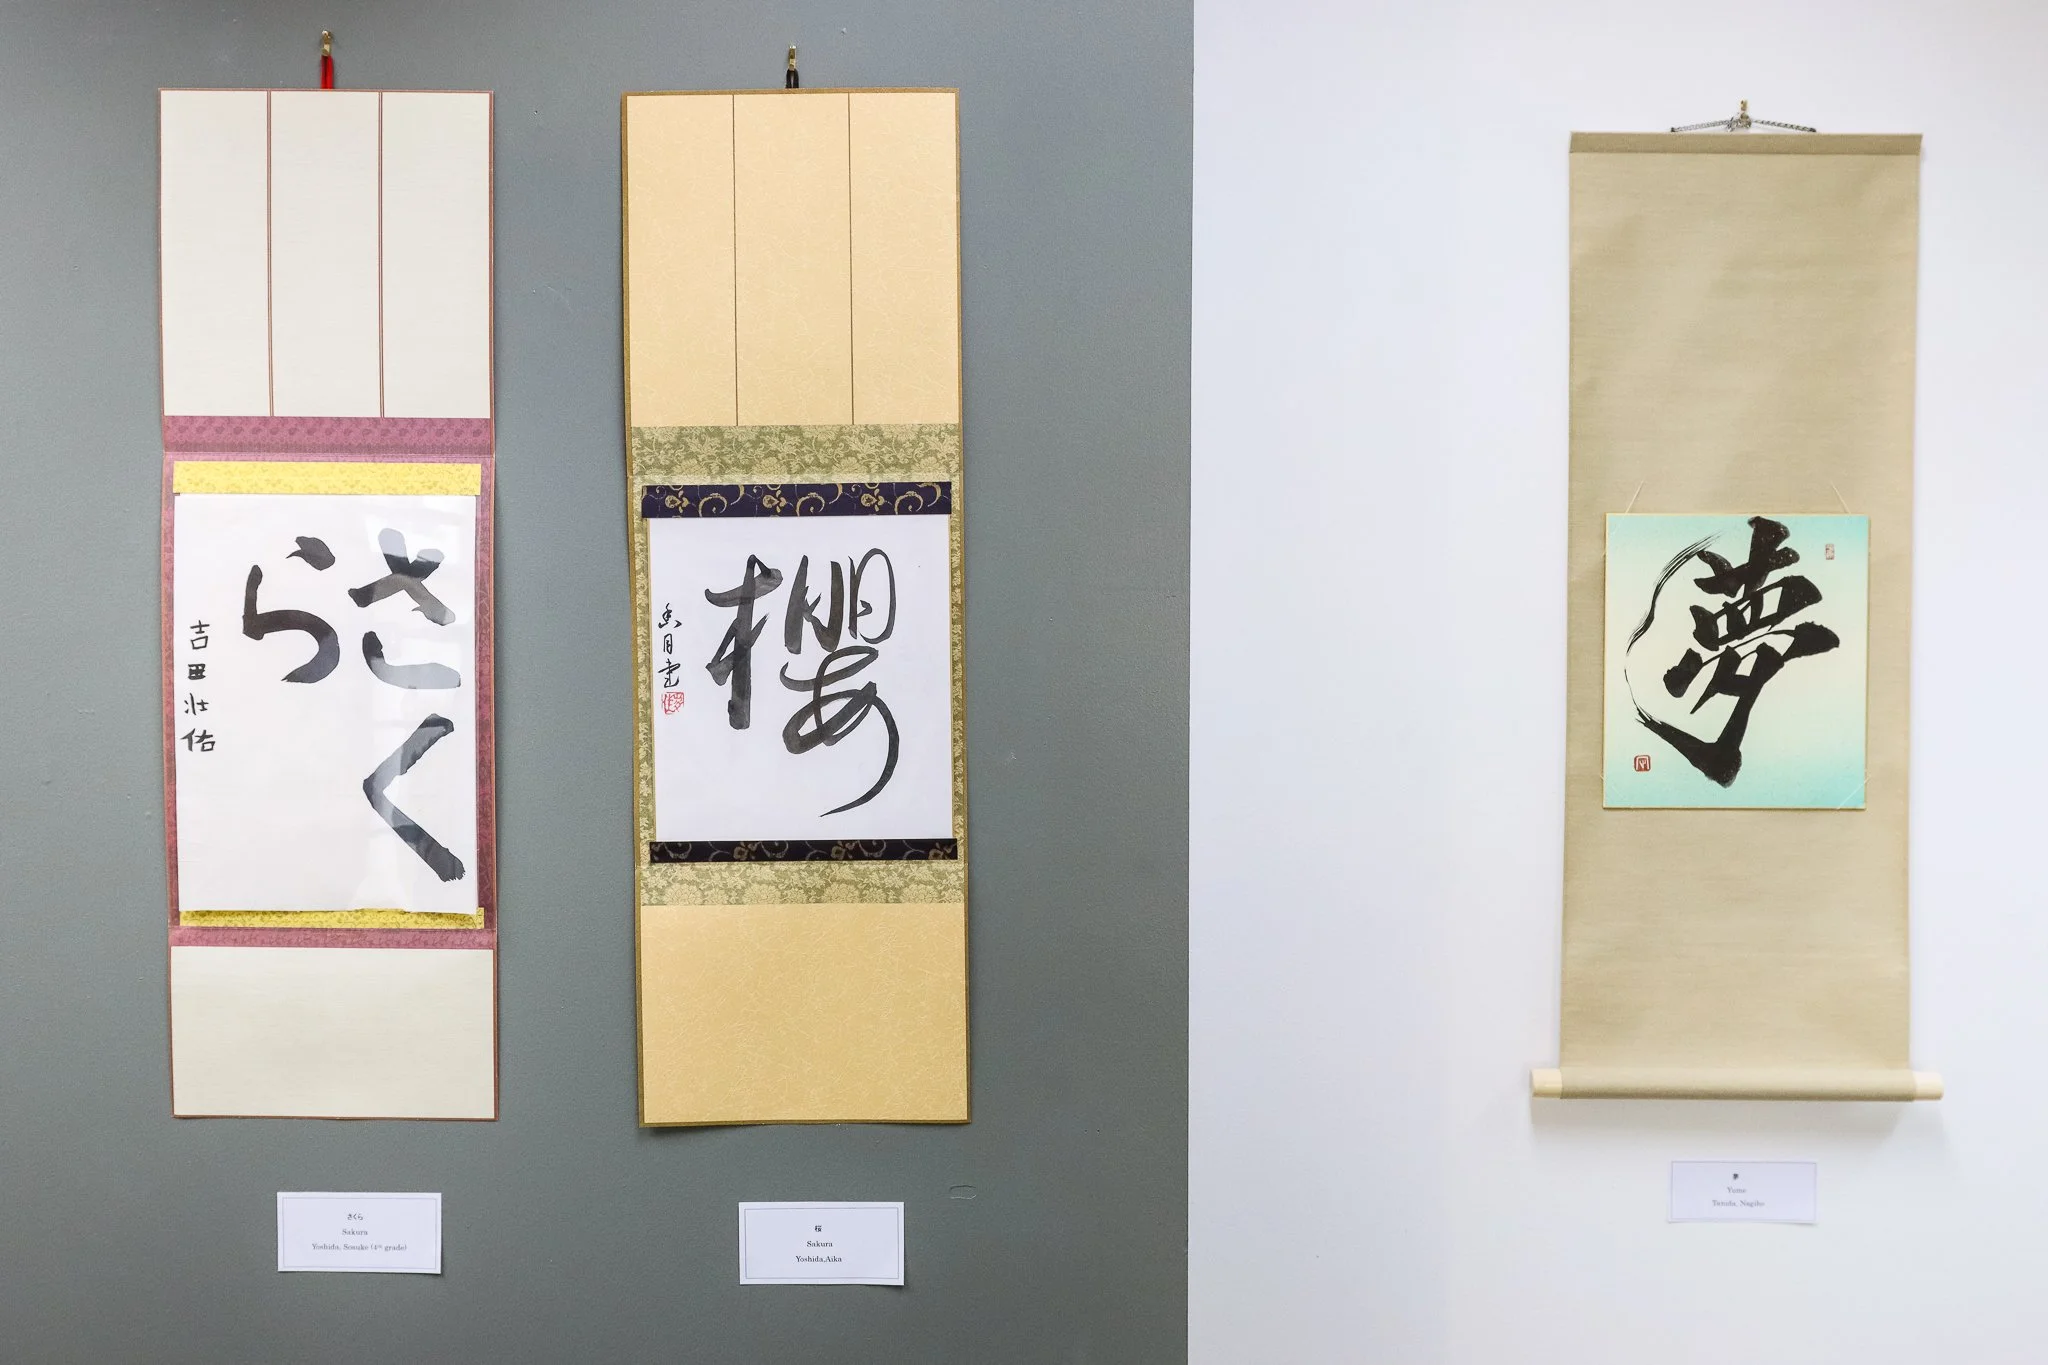 さく
ら
吉田壮佑
さくら
Sakura
Yoshida, Sosuke (4th grade)
櫻
香月書
桜
Sakura
Yoshida,Aika
夢
夢
Yume